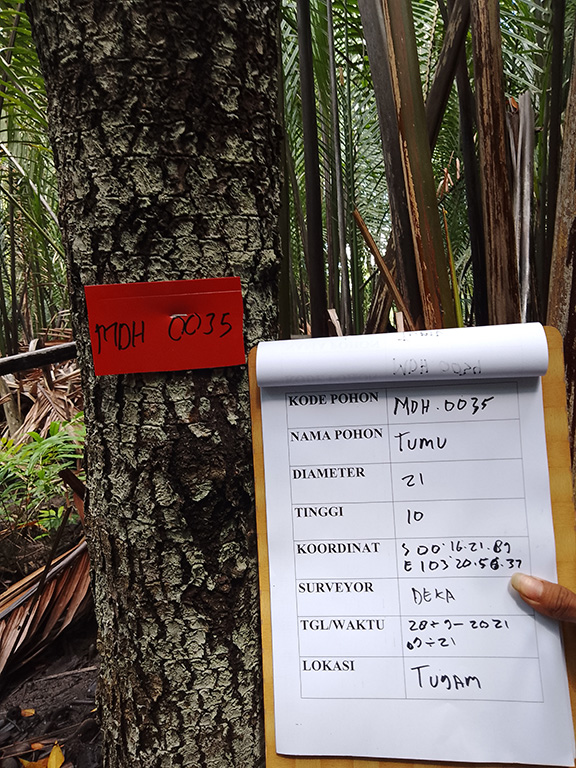 MDH 0035
KODE POHON MDH.0035
NAMA POHON TUMU
DIAMETER 21
TINGGI 10
KOORDINAT S 00°16.21.89
E 103°20.56.37
SURVEYOR DEKA
TGL/WAKTU 20-9-2021
09:21
LOKASI TUGAM